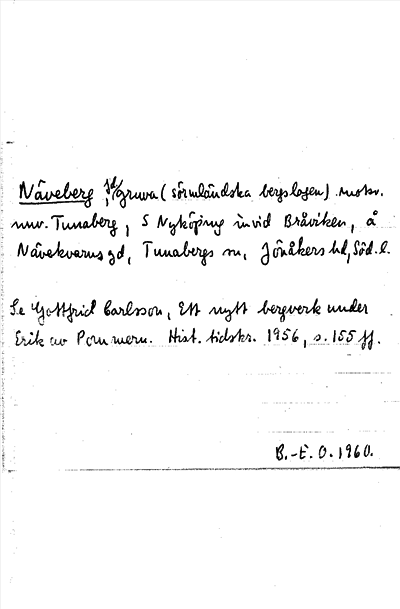 Näveberg, jd/gruva (sörmländska bergslagen) motsv.
nuv. Tunaberg, S Nyköping invid Bråviken, å
Nävekvarns gd, Tunabergs sn, Jönåkers hd, Söd. l.
Se Gottfrid Carlsson, Ett nytt bergverk under
Erik av Pommern. Hist. tidskr. 1956, s. 155 ff.
B.-E. O. 1960.